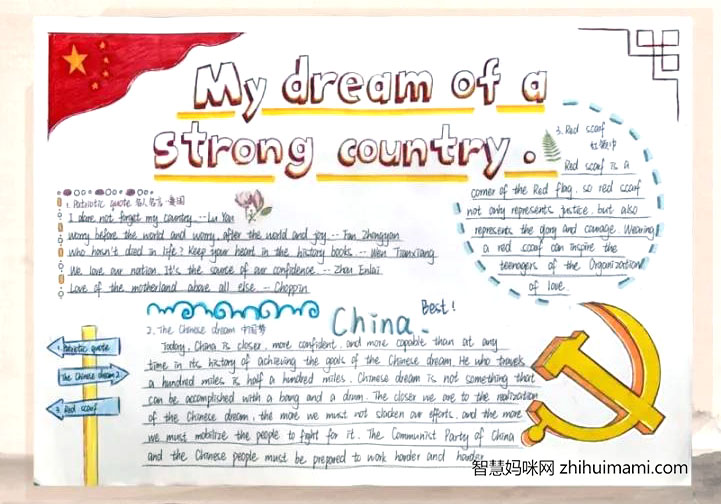 My dream of a
strong country.
1. Patriotic quote 名人名言·爱国
I dare not forget my country. -- Lu You
Worry before the world and worry after the world and joy -- Fan Zhongyan
Who hasn't died in life? Keep your heart in the history books -- Wen Tianxiang
We love our nation. It's the source of our confidence -- Zhou Enlai
Love of the motherland above all else -- Choppin
3. Red scarf
红领巾
Red scarf is a
corner of the Red flag, so red scarf
not only represents justice, but also
represents the glory and courage. Wearing
a red scarf can inspire the
teenagers of the Organization
of love.
Best!
China.
2. The Chinese dream 中国梦
Today, China is closer, more confident, and more capable than at any
time in its history of achieving the goals of the Chinese dream. He who travels
a hundred miles is half a hundred miles. Chinese dream is not something that
can be accomplished with a bang and a drum. The closer we are to the realization
of the Chinese dream, the more we must not slacken our efforts, and the more
we must mobilize the people to fight for it. The Communist Party of China
and the Chinese people must be prepared to work harder and harder
1. Patriotic quote
The Chinese dream 2
3. Red scarf
智慧妈咪网 zhihuimami.com